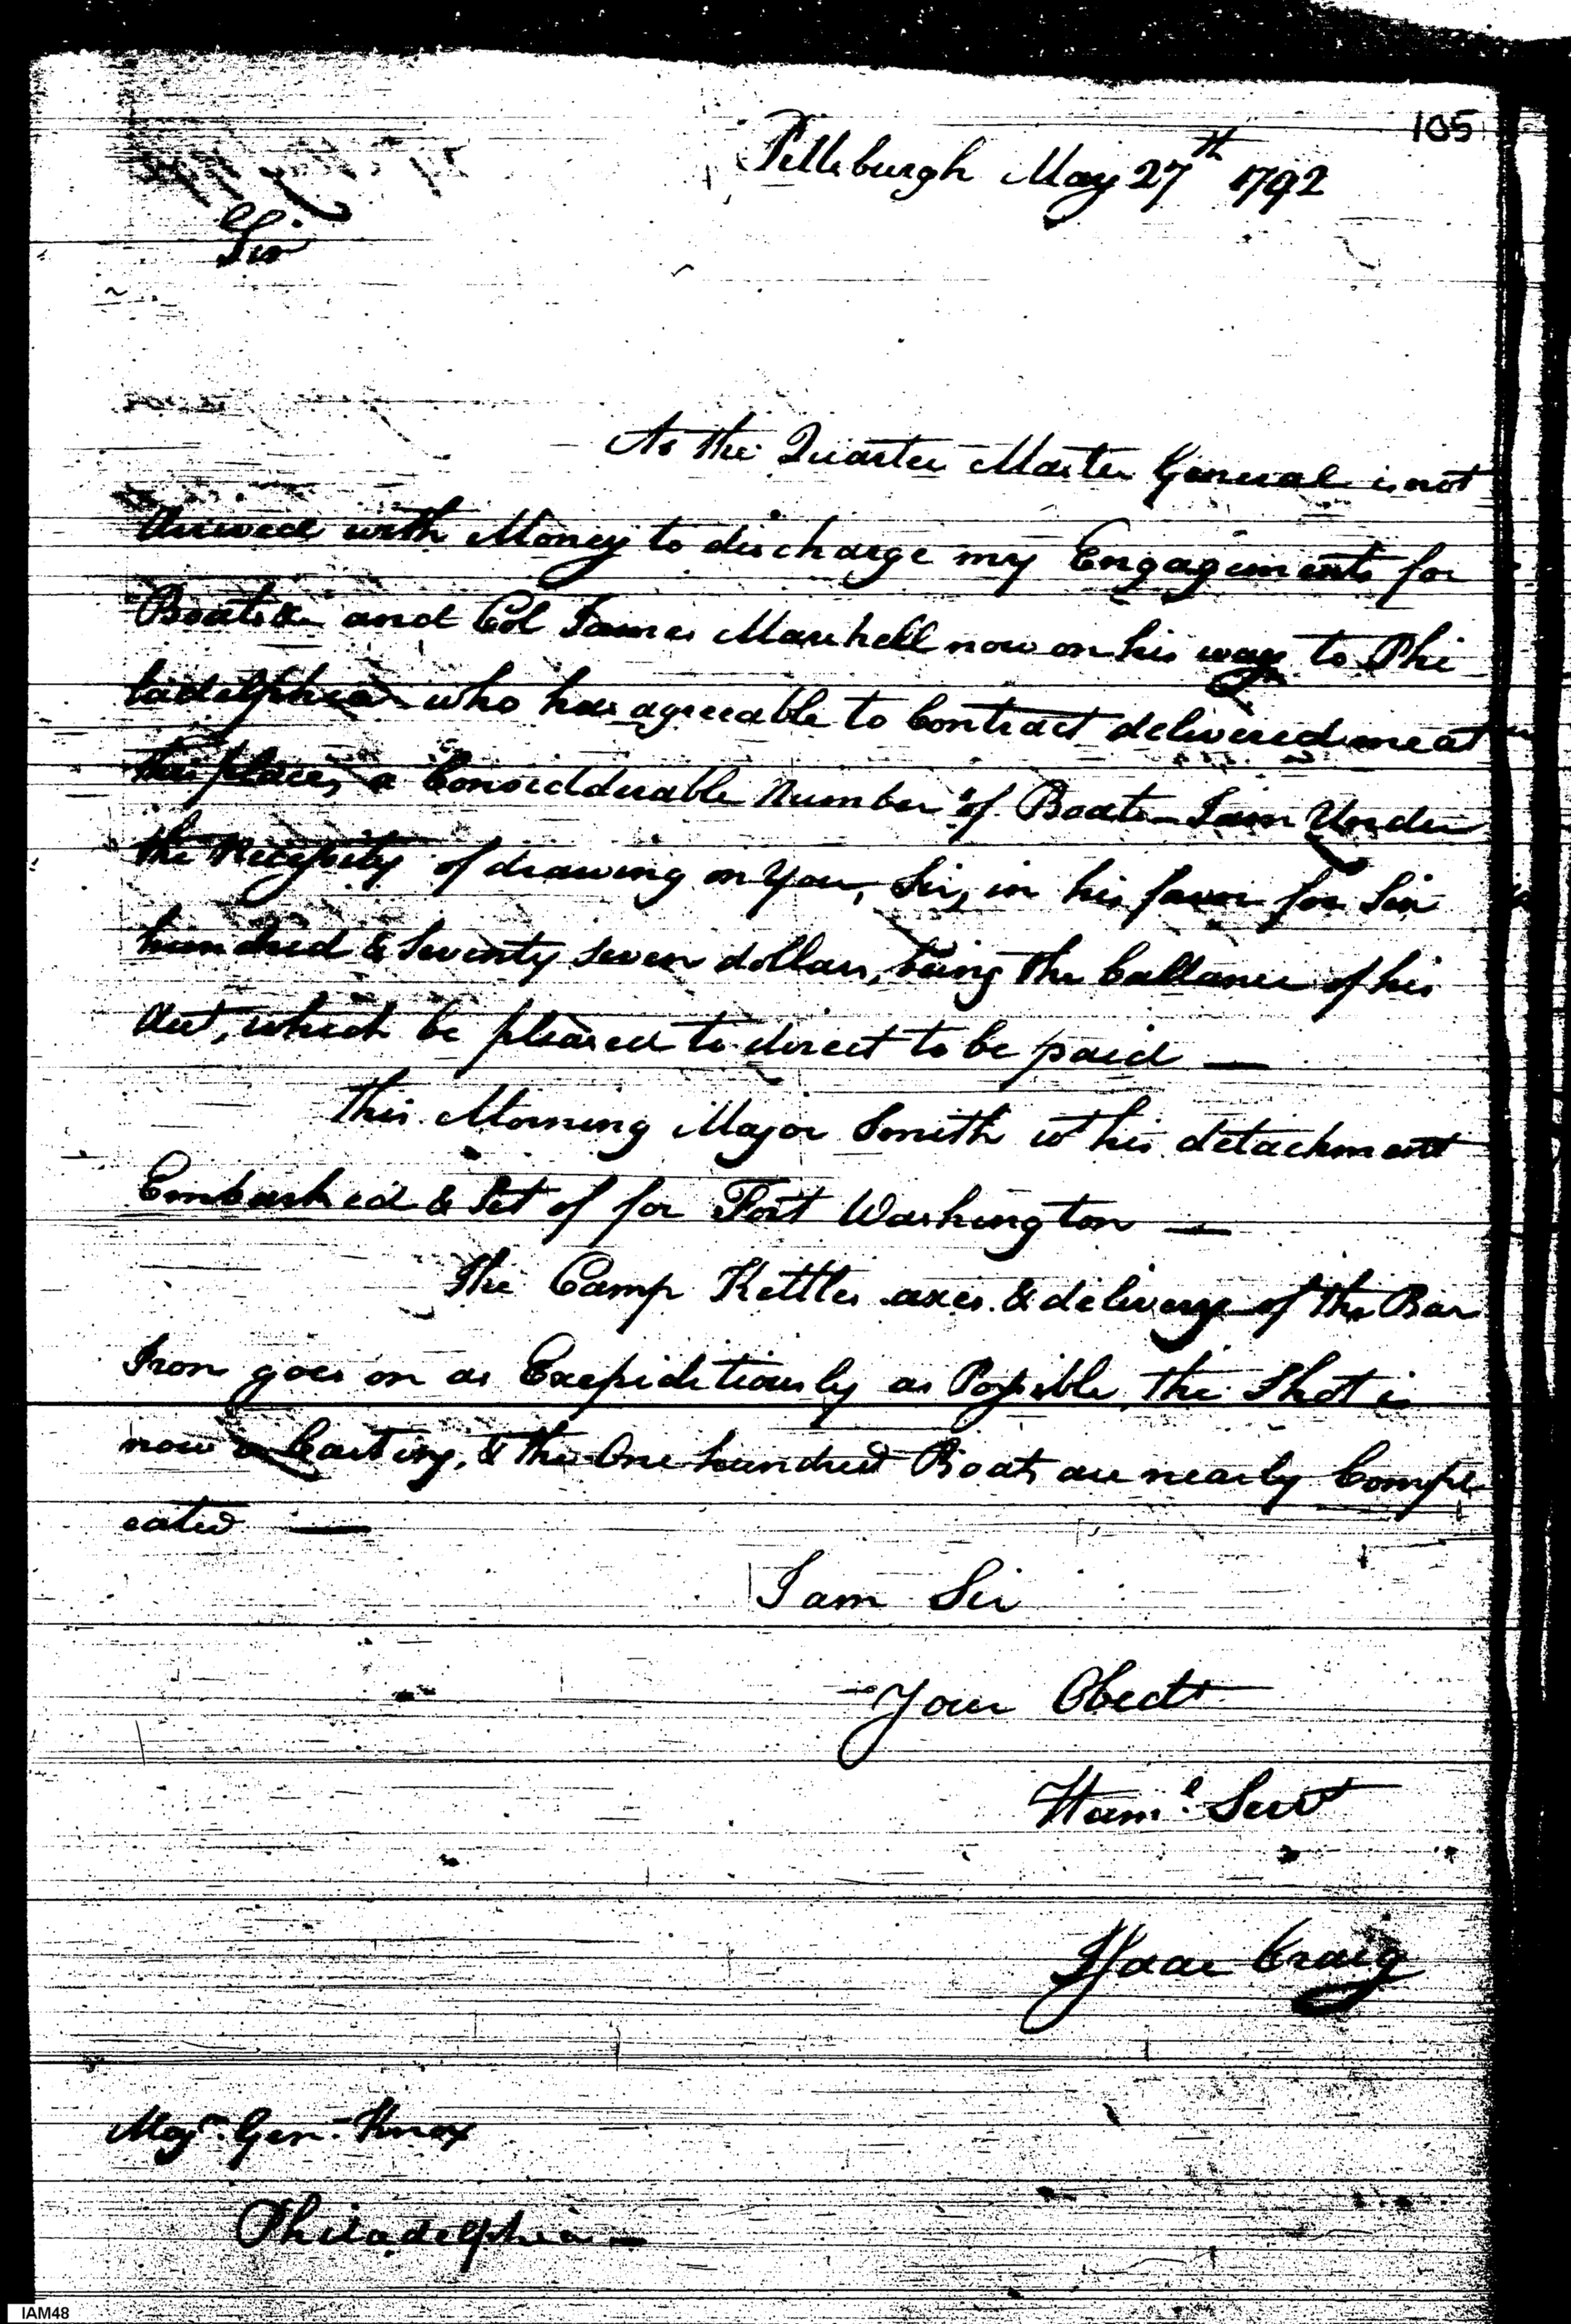 105
Pittsburgh May 27th 1792
Sir
As the Quarter Master General is not
Arrived with Money to discharge my Engagements for
Boats &c and Col James Marshell now on his way to Phi
ladelphia who has agreeable to Contract delivered me at
this place, a Considderable Number of Boats I am Under
the Necessity of drawing on You, Sir, in his favor for Six
hundred & Seventy Seven dollars, being the ballance of his
Acct, which be pleased to direct to be paid —
This Morning Major Smith wt his detachment
Embarked & Set of for Fort Washington —
The Camp Kettles axes & delivery of the Bar
Iron goes on as Exepiditiously as Possible, the Shot is
now a Casting, & the One hundred Boats are nearly Comple
eated —
I am Sir
Your Obedt
Huml Servt
Isaac Craig
Majr Gen Knox
Philadelphia —
IAM48